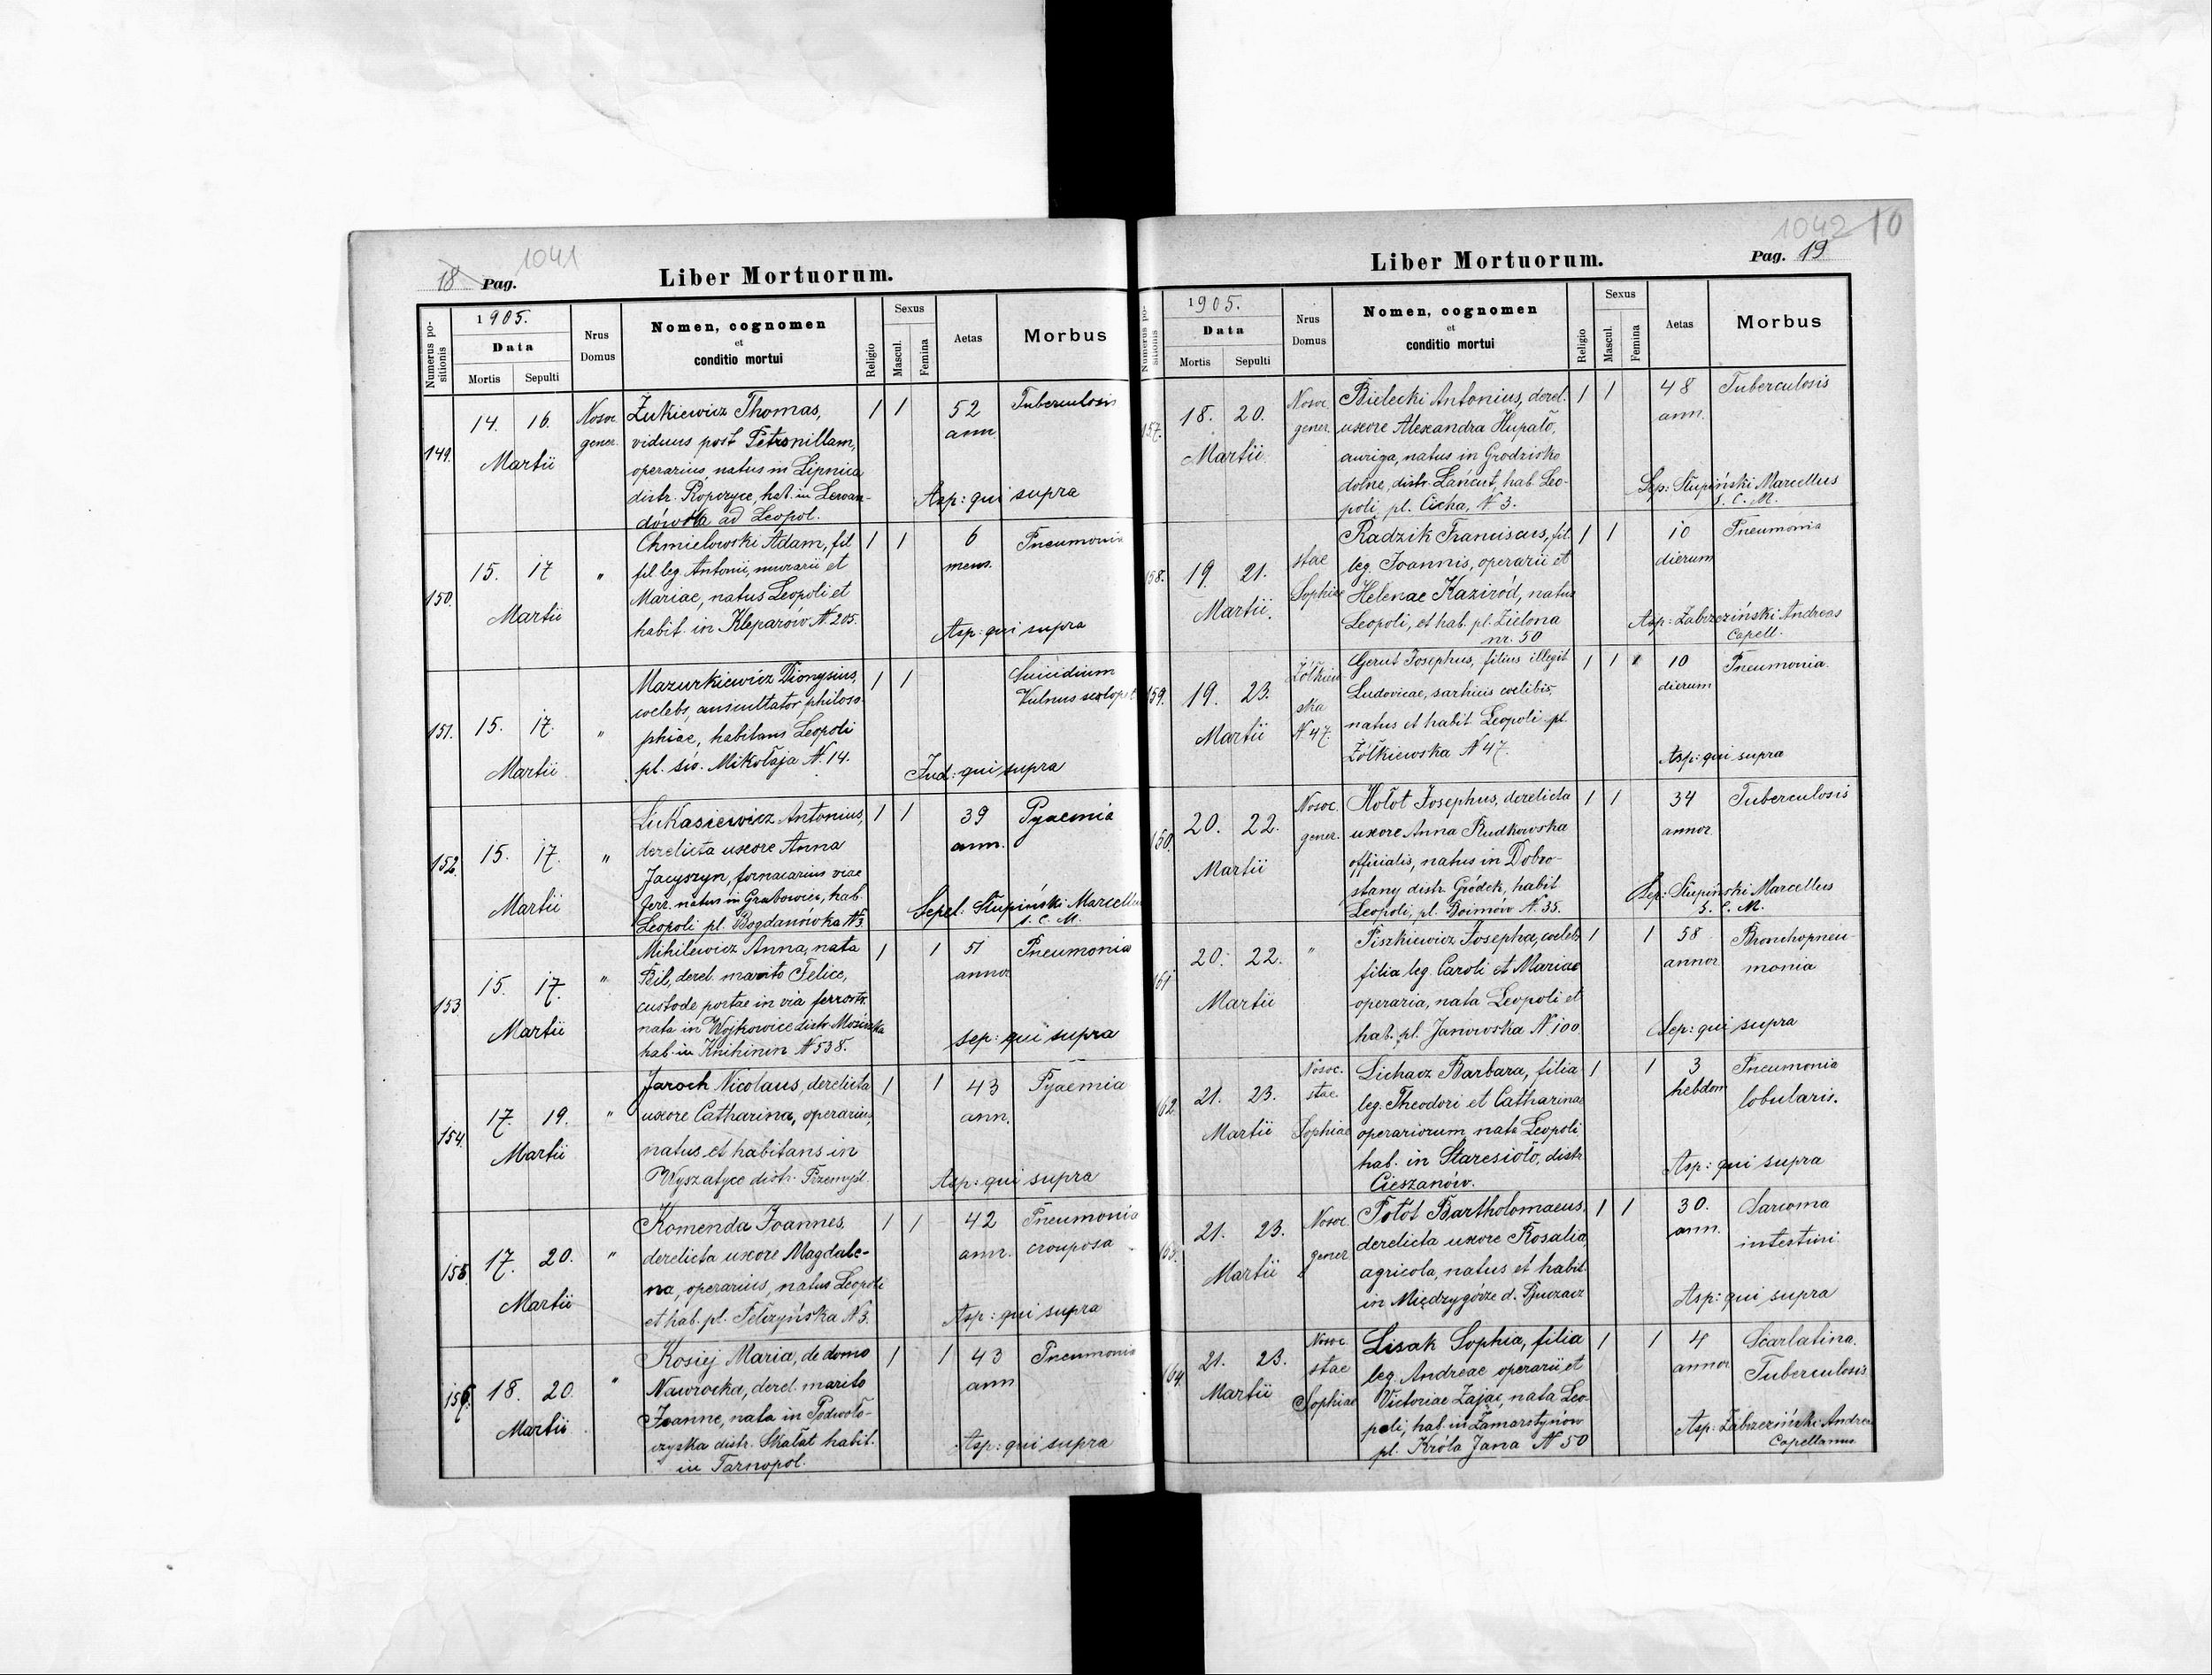 1041
18 Pag.
Liber Mortuorum.
Numerus positionis
1905.
Data
Mortis
Sepulti
Nrus Domus
Nomen, cognomen
et
conditio mortui
Religio
Sexus
Mascul.
Femina
Aetas
Morbus
149.
14. 16.
Martii
Nosoc.
gener.
Żukiewicz Thomas,
viduus post Petronillam,
operarius, natus in Lipnica
distr. Ropczyce, hab. in Lewan-
dówka ad Leopol.
1 1
52
ann.
Tuberculosis
Asp: qui supra
150.
15. 17
Martii
"
Chmielowski Adam, fil
fil. leg. Antonii, murarii et
Mariae, natus Leopoli et
habit. in Kleparów N. 205.
1 1
6
mens.
Pneumonia
Asp: qui supra
151.
15. 17.
Martii
"
Mazurkiewicz Dionysius,
coelebs, auscultator philoso-
phiae, habitans Leopoli
pl. św. Mikołaja N. 14.
1 1
Suicidium
Vulnus sclopet
Jud: qui supra
152.
15. 17.
Martii
"
Łukasiewicz Antonius,
derelicta uxore Anna
Jacyszyn, fornacarius viae
ferr. natus in Grabowiec, hab.
Leopoli pl. Bogdanówka N3.
1 1
39
ann.
Pyaemia
Sepel: Słupiński Marcellus
S. C. M.
153
15. 17.
Martii
"
Mihilewicz Anna, nata
Bil, derel. marito Felice,
custode portae in via ferrostr.
nata in Wojkowice distr. Mościska
hab. in Knihinin N 538.
1 1
51
annor
Pneumonia
sep: qui supra
154.
17. 19.
Martii
"
Jaroch Nicolaus, derelicta
uxore Catharina, operarius,
natus et habitans in
Wyszatyce distr. Przemyśl.
1 1
43
ann.
Pyaemia
Asp: qui supra
155.
17. 20.
Martii
"
Komenda Joannes,
derelicta uxore Magdale-
na, operarius, natus Leopoli
et hab. pl. Pełczyńska N 3.
1 1
42
ann.
Pneumonia
crouposa
Asp: qui supra
156.
18. 20.
Martii
"
Kosiej Maria, de domo
Nawrocka, derel. marito
Joanne, nata in Podwoło-
czyska distr. Skałat habit.
in Tarnopol.
1 1
43
ann
Pneumonia
Asp: qui supra
1042 10
Liber Mortuorum.
Pag. 19
Numerus positionis
1905.
Data
Mortis
Sepulti
Nrus Domus
Nomen, cognomen
et
conditio mortui
Religio
Sexus
Mascul.
Femina
Aetas
Morbus
157.
18. 20.
Martii
Nosoc.
gener.
Bielecki Antonius, derel.
uxore Alexandra Hupało,
auriga, natus in Grodzisko
dolne, distr. Łańcut, hab. Leo-
poli, pl. Cicha, N 3.
1 1
48
ann.
Tuberculosis
Sep: Słupiński Marcellus
S. C. M.
158.
19 21.
Martii.
stae
Sophiae
Radzik Franciscus, fil.
leg. Joannis, operarii et
Helenae Kaziród, natus
Leopoli, et hab. pl. Zielona
nr. 50
1 1
10
dierum
Pneumonia
Asp: Zabrzeziński Andreas
Capell.
159.
19. 23.
Martii
Żółkiew
ska
N. 47.
Gerut Josephus, filius illegit
Ludovicae, sarhicis coelibis,
natus et habit. Leopoli pl.
Żółkiewska N 47.
1 1
10
dierum
Pneumonia.
Asp: qui supra
150.
20. 22.
Martii
Nosoc.
gener.
Hołot Josephus, derelicta
uxore Anna Rudkowska
officialis, natus in Dobro-
stany distr. Gródek, habit
Leopoli, pl. Boimów N. 35.
1 1
34
annor.
Tuberculosis
Sep: Słupiński Marcellus
S. C. M.
161
20. 22.
Martii
"
Piszkiewicz Josepha, coelebs
filia leg. Caroli et Mariae
operaria, nata Leopoli et
hab. pl. Janowska N 100.
1 1
58
annor
Bronchopneu-
monia
Sep: qui supra
162.
21. 23.
Martii
Nosoc.
stae
Sophiae
Lichacz Barbara, filia
leg. Theodori et Catharinae
operariorum nata Leopoli,
hab. in Staresioło, distr.
Cieszanów.
1 1
3
hebdom
Pneumonia
lobularis.
Asp: qui supra
163.
21. 23.
Martii
Nosoc.
gener
Potot Bartholomaeus,
derelicta uxore Rosalia,
agricola, natus et habit.
in Międzygórze d. Buczacz
1 1
30.
ann.
Sarcoma
intestini
Asp: qui supra
164.
21. 23.
Martii
Nosoc.
stae
Sophiae
Lisak Sophia, filia
leg. Andreae operarii et
Victoriae Zając, nata Leo-
poli, hab. in Zamarstynów
pl. Króla Jana N 50
1 1
4
annor
Scarlatina.
Tuberculosis
Asp: Zabrzeziński Andreas
Capellanus